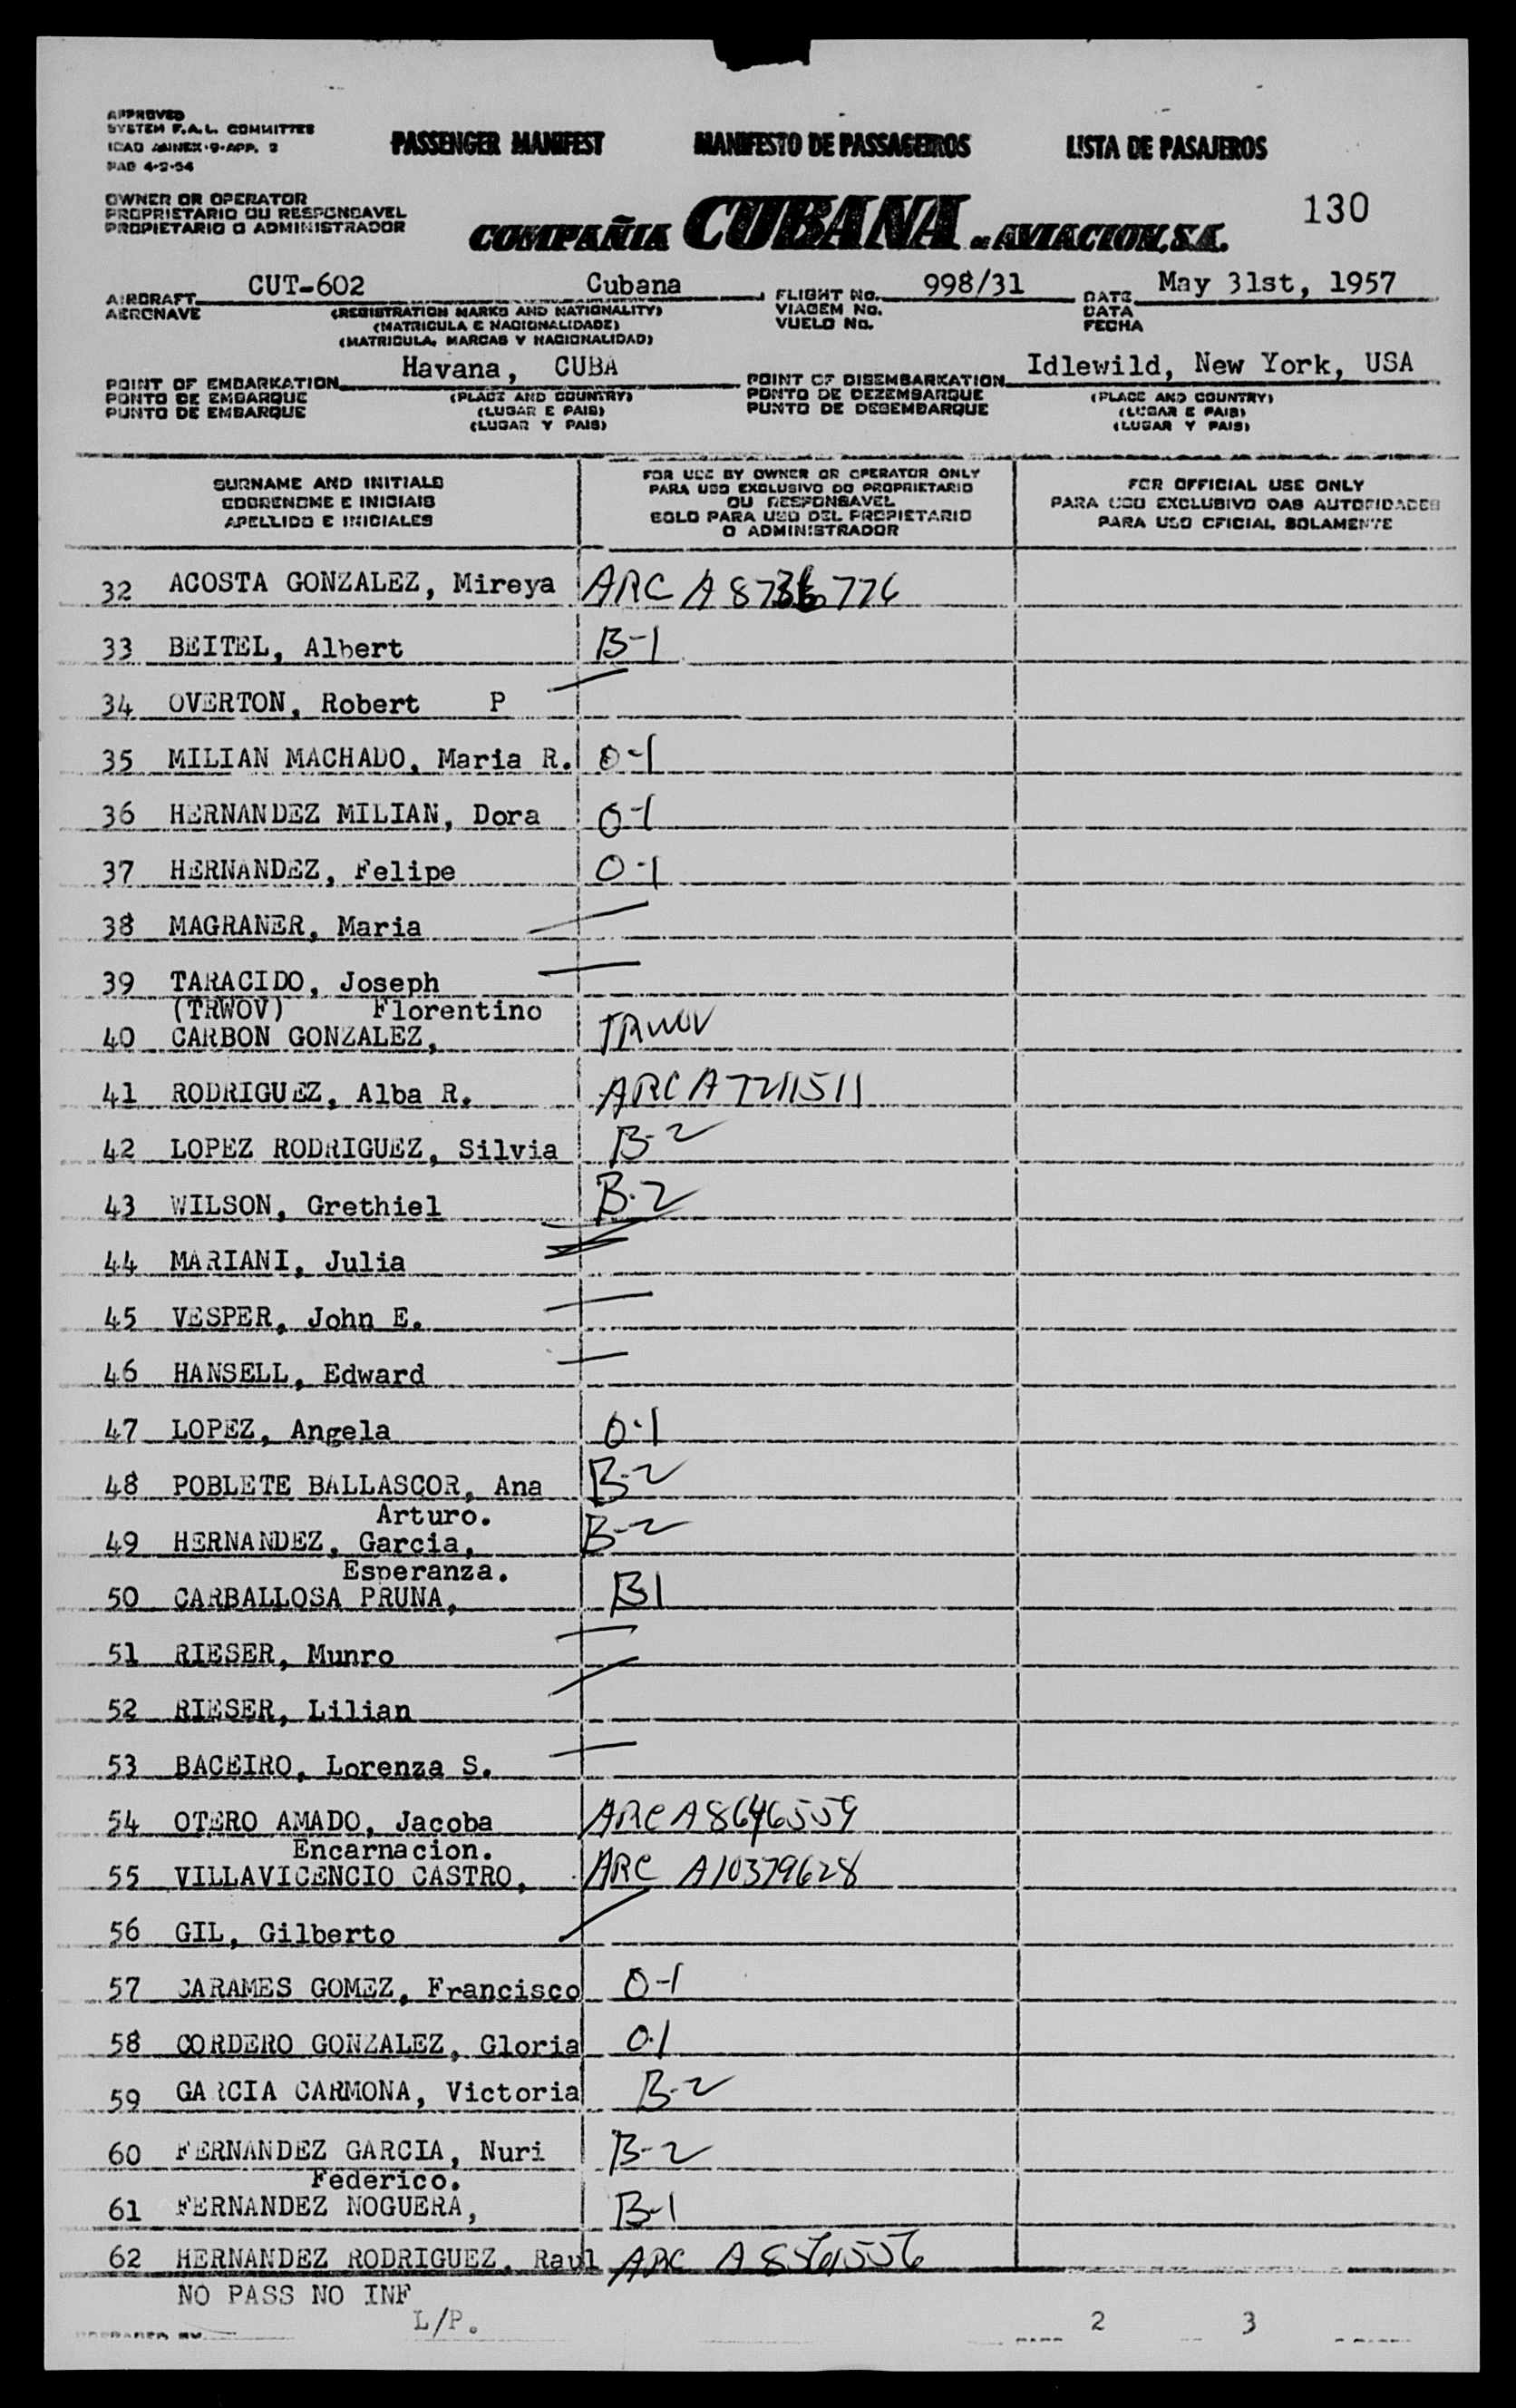 APPROVED
SYSTEM F.A.L. COMMITTEE
ICAO ANNEX-9-APP. 3
PASSENGER MANIFEST MANIFESTO DE PASSAGEIROS LISTA DE PASAJEROS
OWNER OR OPERATOR
PROPRIETARIO OU RESPONSAVEL
PROPIETARIO O ADMINISTRADOR
COMPAÑIA CUBANA DE AVIACION, S.A.
130
AIRCRAFT CUT-602 Cubana FLIGHT No. 998/31 DATE May 31st, 1957
AERONAVE (REGISTRATION MARKS AND NATIONALITY) VIAGEM No. DATA
(MATRICULA E NACIONALIDADE) VUELO No. FECHA
(MATRICULA, MARCAS Y NACIONALIDAD)
POINT OF EMBARKATION Havana, CUBA POINT OF DISEMBARKATION Idlewild, New York, USA
PONTO DE EMBARQUE (PLACE AND COUNTRY) PONTO DE DEZEMBARQUE (PLACE AND COUNTRY)
PUNTO DE EMBARQUE (LUGAR E PAIS) PUNTO DE DESEMBARQUE (LUGAR E PAIS)
(LUGAR Y PAIS) (LUGAR Y PAIS)
SURNAME AND INITIALS
COGRENOME E INICIAIS
APELLIDO E INICIALES
FOR USE BY OWNER OR OPERATOR ONLY
PARA USO EXCLUSIVO DO PROPRIETARIO
OU RESPONSAVEL
SOLO PARA USO DEL PROPIETARIO
O ADMINISTRADOR
FOR OFFICIAL USE ONLY
PARA USO EXCLUSIVO DAS AUTORIDADES
PARA USO OFICIAL SOLAMENTE
32 ACOSTA GONZALEZ, Mireya ARC A
33 BEITEL, Albert B-1
34 OVERTON, Robert P
35 MILIAN MACHADO, Maria R. 0-1
36 HERNANDEZ MILIAN, Dora 0-1
37 HERNANDEZ, Felipe 0-1
38 MAGRANER, Maria
39 TARACIDO, Joseph
(TRWOV) Florentino
40 CARBON GONZALEZ, TRWOV
41 RODRIGUEZ, Alba R. ARC A7211511
42 LOPEZ RODRIGUEZ, Silvia B-2
43 WILSON, Grethiel B-2
44 MARIANI, Julia
45 VESPER, John E.
46 HANSELL, Edward
47 LOPEZ, Angela 0-1
48 POBLETE BALLASCOR, Ana B-2
Arturo.
49 HERNANDEZ, Garcia, B-2
Esperanza.
50 CARBALLOSA PRUNA, B1
51 RIESER, Munro
52 RIESER, Lilian
53 BACEIRO, Lorenza S.
54 OTERO AMADO, Jacoba ARC A8646559
Encarnacion.
55 VILLAVICENCIO CASTRO, ARC A10379628
56 GIL, Gilberto
57 CARAMES GOMEZ, Francisco 0-1
58 CORDERO GONZALEZ, Gloria 0-1
59 GARCIA CARMONA, Victoria B-2
60 FERNANDEZ GARCIA, Nuri B-2
Federico.
61 FERNANDEZ NOGUERA, B-1
62 HERNANDEZ RODRIGUEZ, Raul ARC A
NO PASS NO INF
L/P.
2 3